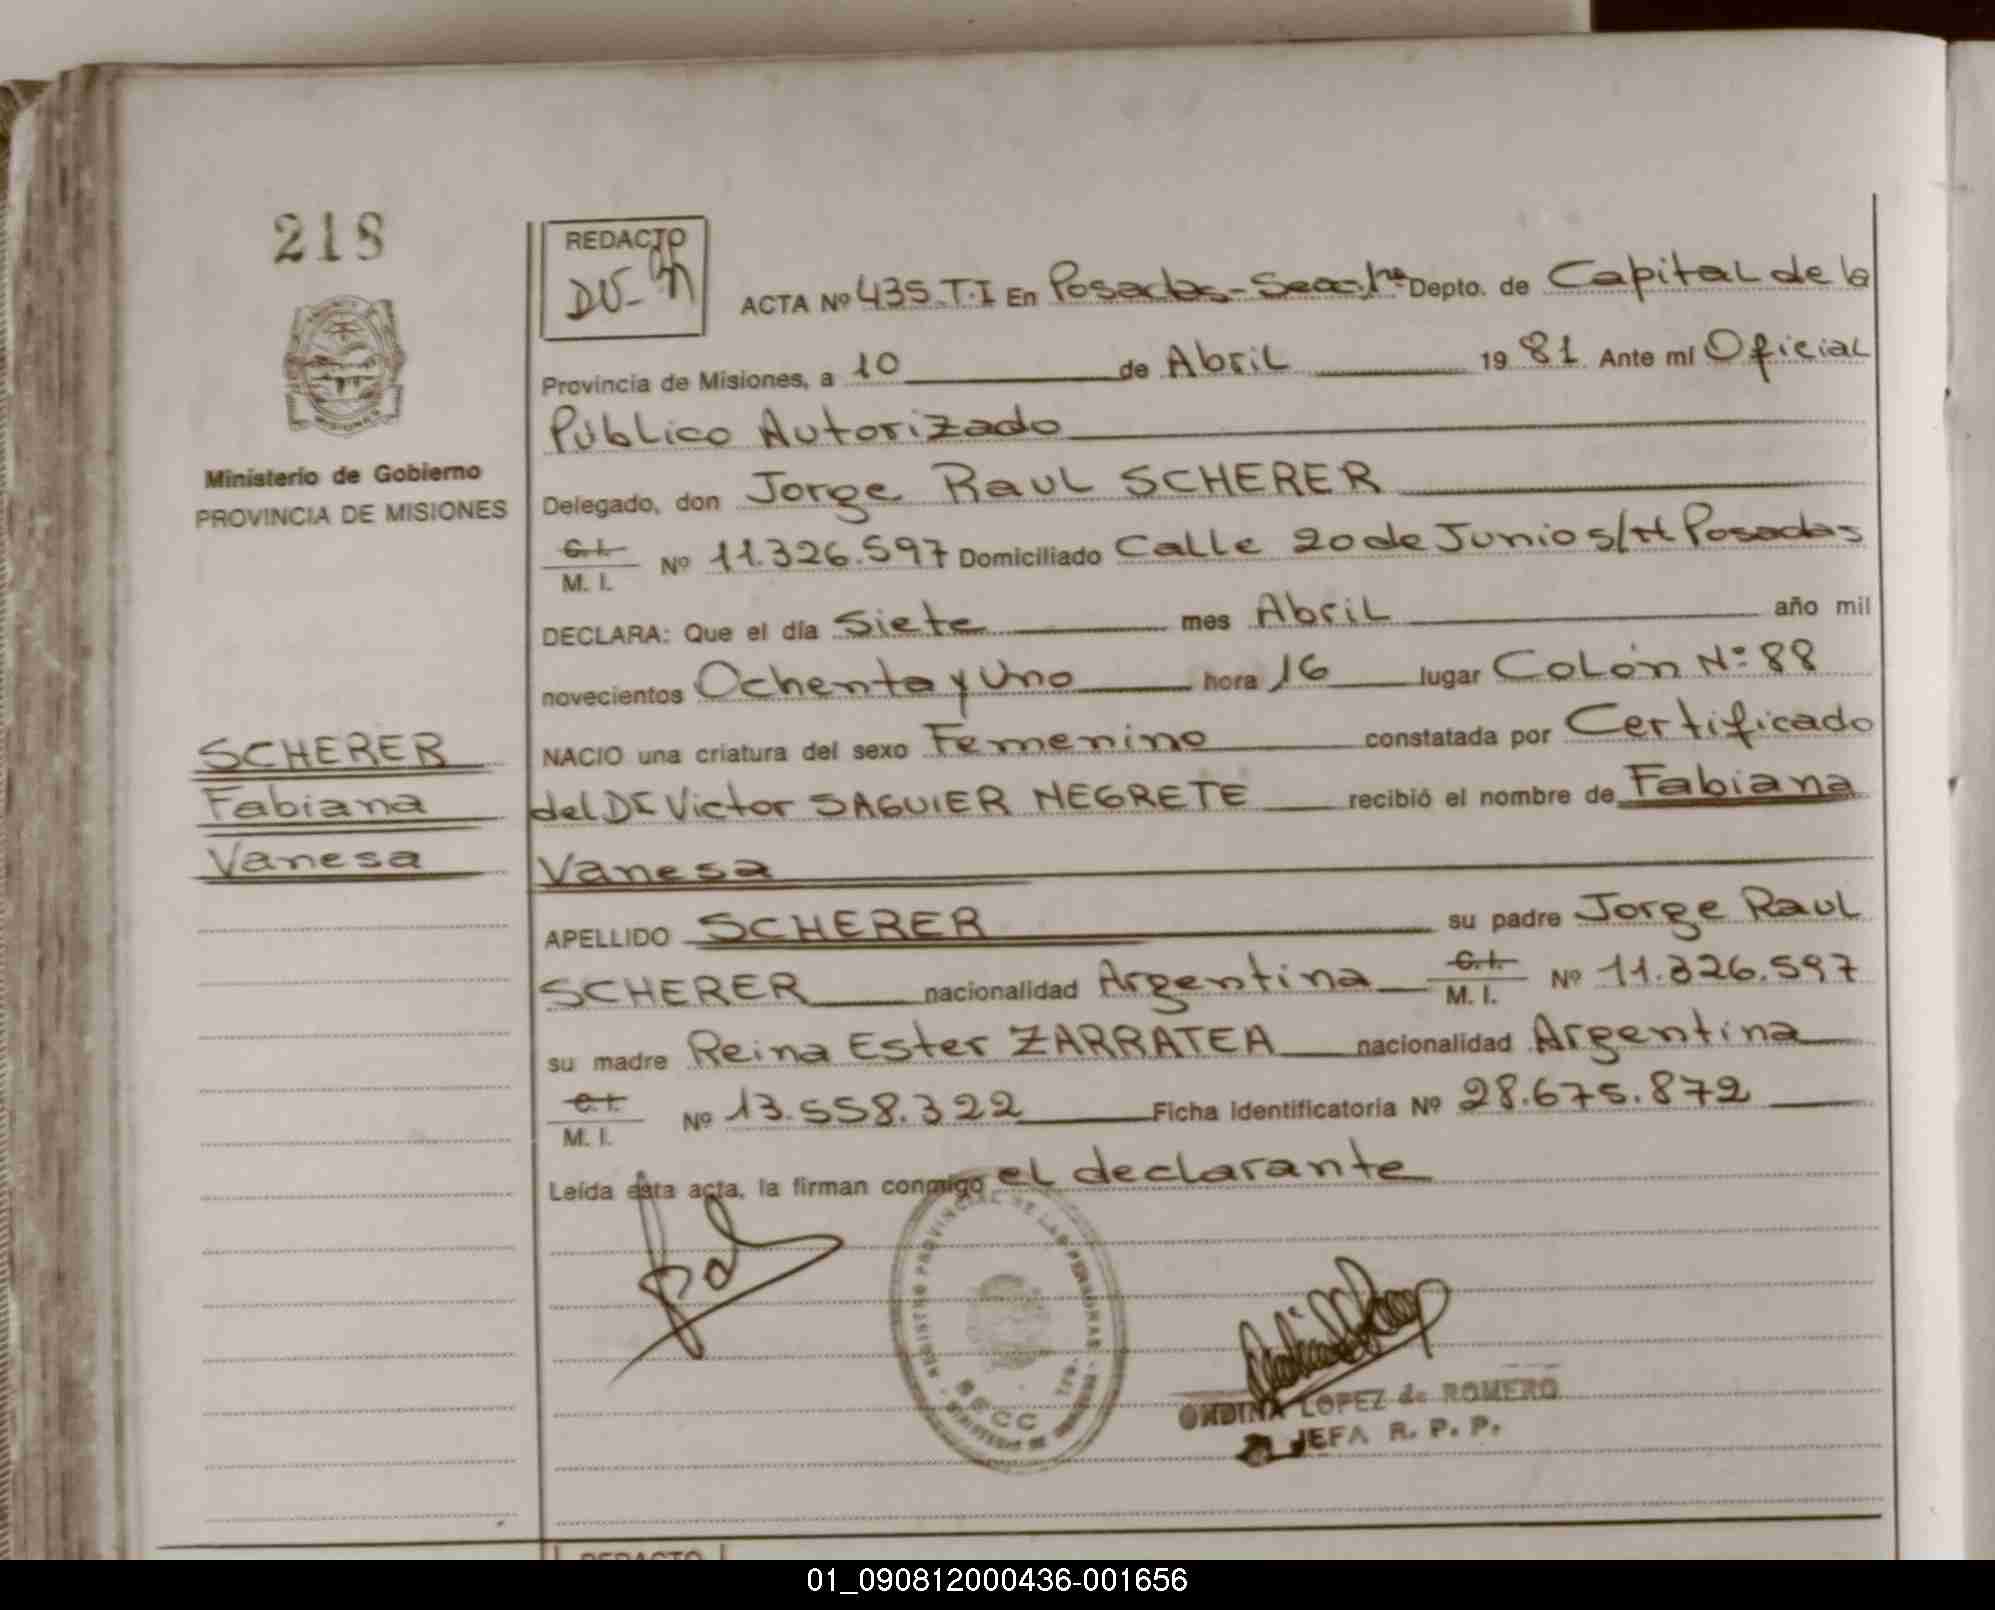 218
REDACTO
ACTA Nº 435.T.I En Posadas-Secc.1ra Depto. de Capital de la
Provincia de Misiones, a 10 de Abril 19 81 Ante mi Oficial
Público Autorizado
Ministerio de Gobierno
PROVINCIA DE MISIONES
Delegado, don Jorge Raul SCHERER
C.I.
M. I. Nº 11.326.597 Domiciliado Calle 20 de Junio s/N Posadas
DECLARA: Que el día Siete mes Abril año mil
novecientos Ochenta y Uno hora 16 lugar Colón Nº 88
SCHERER
Fabiana
Vanesa
NACIO una criatura del sexo Femenino constatada por Certificado
del Dr Victor SAGUIER NEGRETE recibió el nombre de Fabiana
Vanesa
APELLIDO SCHERER su padre Jorge Raul
SCHERER nacionalidad Argentina C.I. M. I. Nº 11.326.597
su madre Reina Ester ZARRATEA nacionalidad Argentina
C.I.
M. I. Nº 13.558.322 Ficha identificatoria Nº 28.675.872
Leída ésta acta, la firman conmigo el declarante
REGISTRO PROVINCIAL DE LAS PERSONAS
SECC
ONDINA LOPEZ de ROMERO
JEFA R. P. P.
REDACTO
01_090812000436-001656